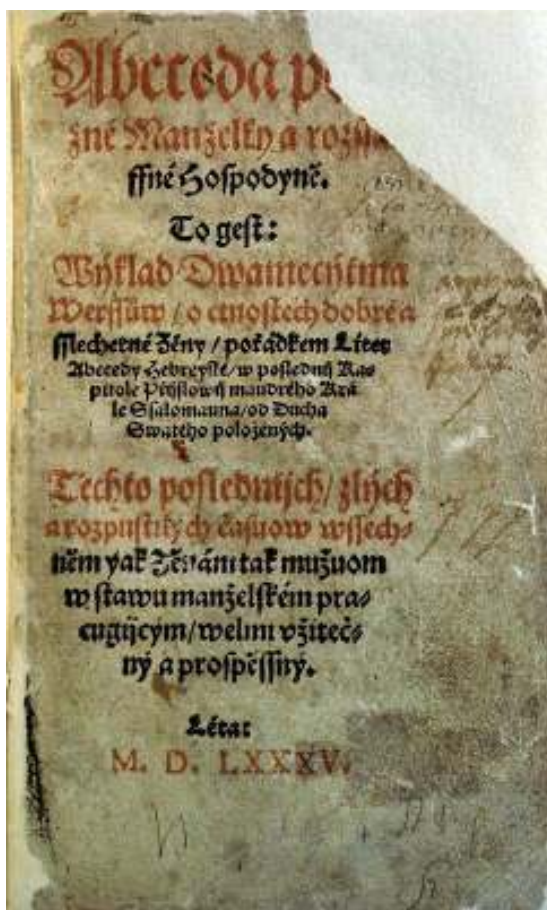 Abeceda po
žné Manželky a rozssa
ffné Hospodyně.
To gest:
Wýklad Dwamecýtma
Werssůw / o ctnostech dobré a
sslechetné Ženy / pořádkem Liter
Abecedy Hebreyské / w poslednij Kap
pitole Přijslowij maudrého Krá
le Ssalomauna / od Ducha
Swatého položených.
Těchto poslednijch / zlých
a rozpustilých časuow wssech-
něm yak Ženám tak mužuom
w stawu manželském pra-
cugijcým / welmi vžiteč-
ný a prospěssný.
Létat
M. D. LXXXV.